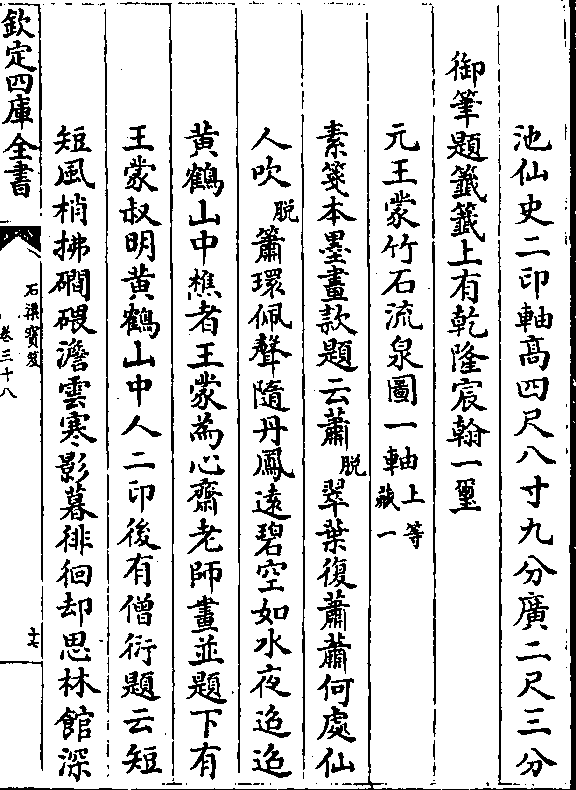 池仙史二印軸高四尺八寸九分廣二尺三分
御筆題籤籤上有乾隆宸翰一璽
元王蒙竹石流泉圖一軸上等藏一
素箋本墨畫款題云蕭脱翠葉復蕭蕭何處仙
人吹脱簫環佩聲隨丹鳳遠碧空如水夜迢迢
黄鶴山中樵者王蒙為心齋老師畫並題下有
王蒙叔明黄鶴山中人二印後有僧衍題云短
短風梢拂磵隈澹雲寒影暮徘徊却思林館深
欽定四庫全書
石渠寶笈
卷三十八
十七